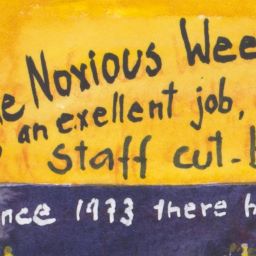 e Noxious Wee
an exellent job,
Staff cut-b
nce 1973 there h